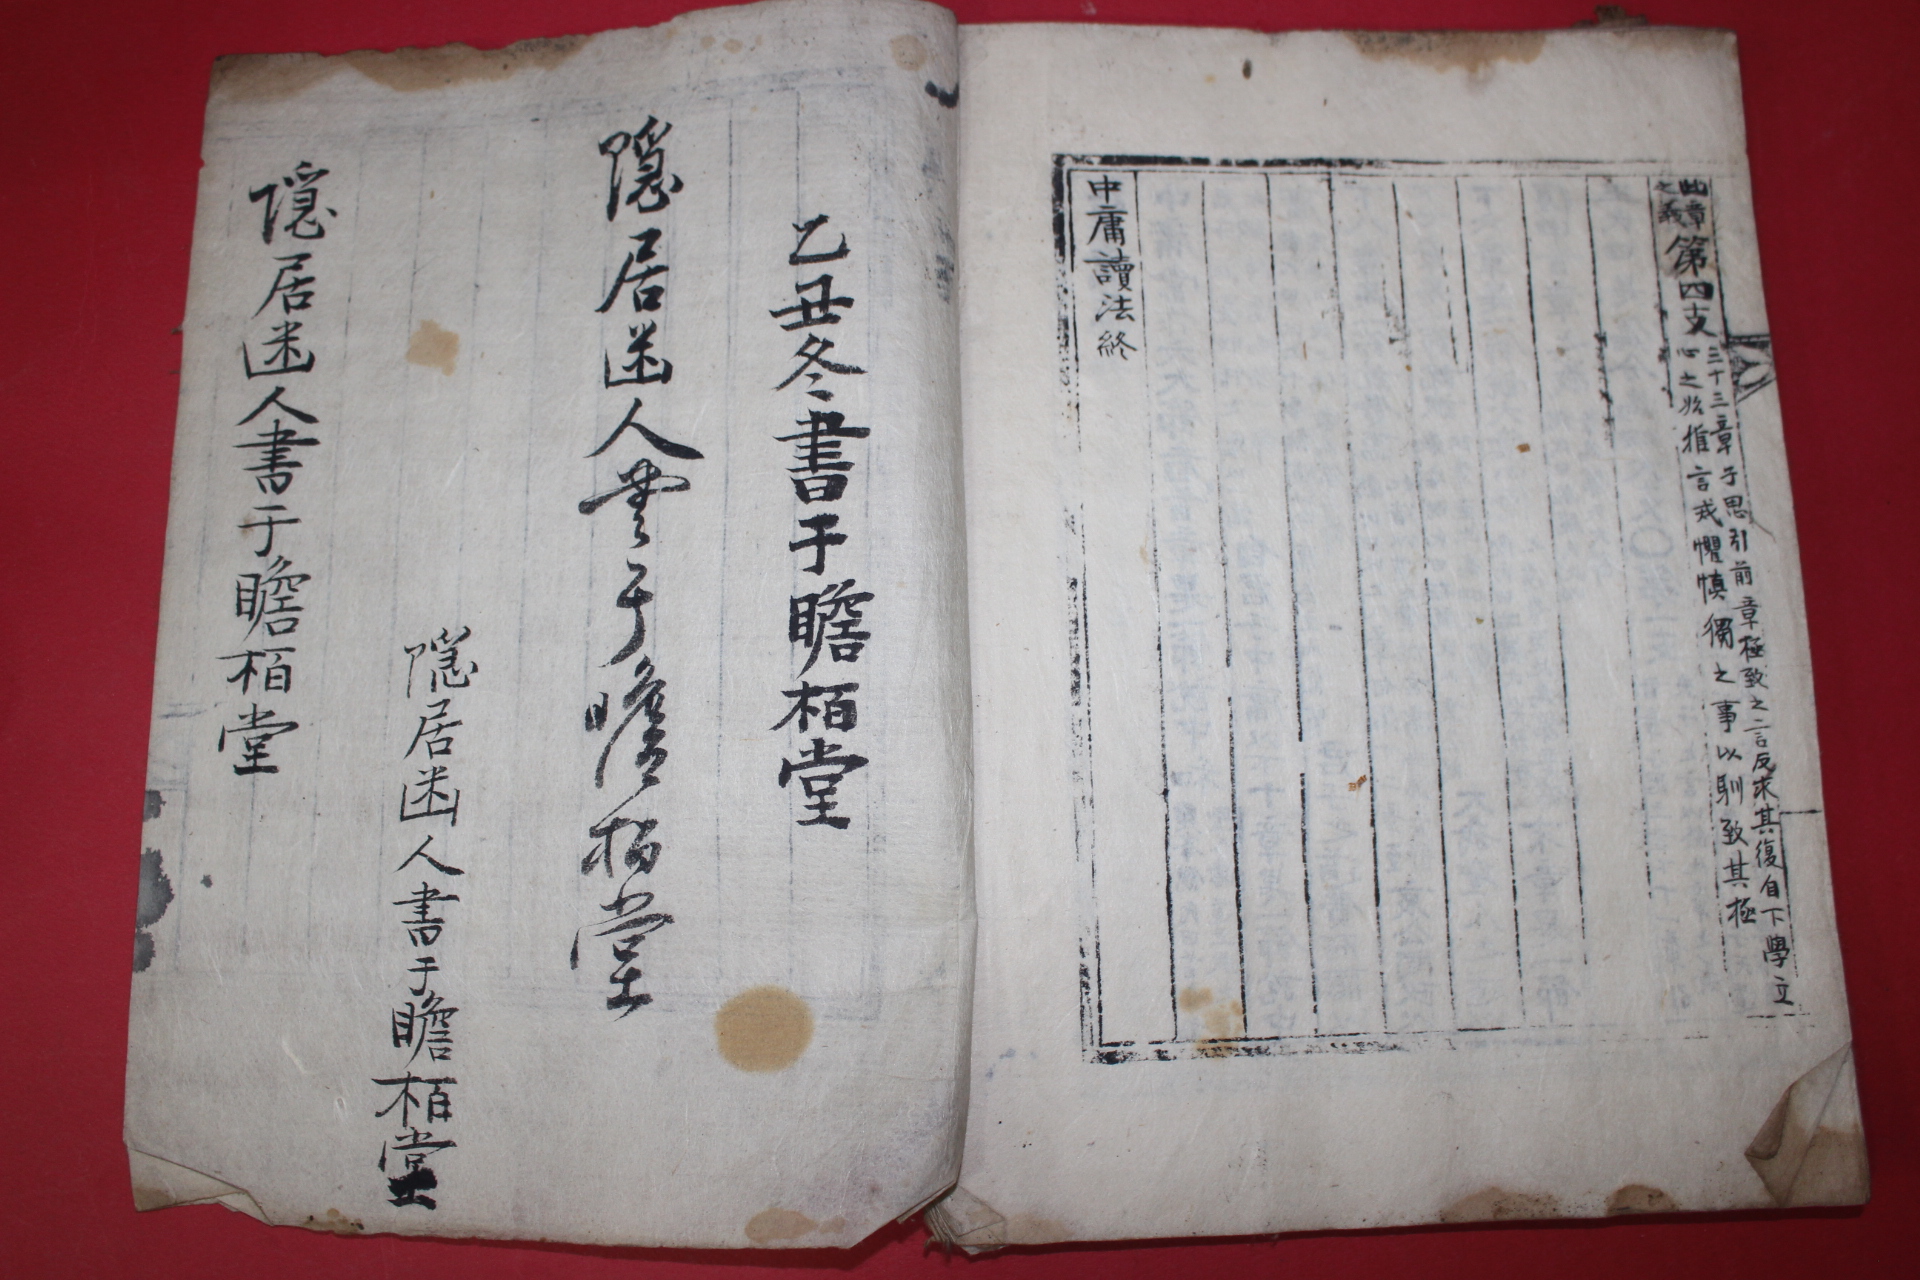 此章之義第四支
三十三章子思引前章極致之言反求其復自下學立
心之始推言戒懼慎獨之事以馴致其極
中庸讀法終
乙丑冬書于瞻栢堂
隱居幽人書于瞻栢堂
隱居幽人書于瞻栢堂
隱居幽人書于瞻栢堂